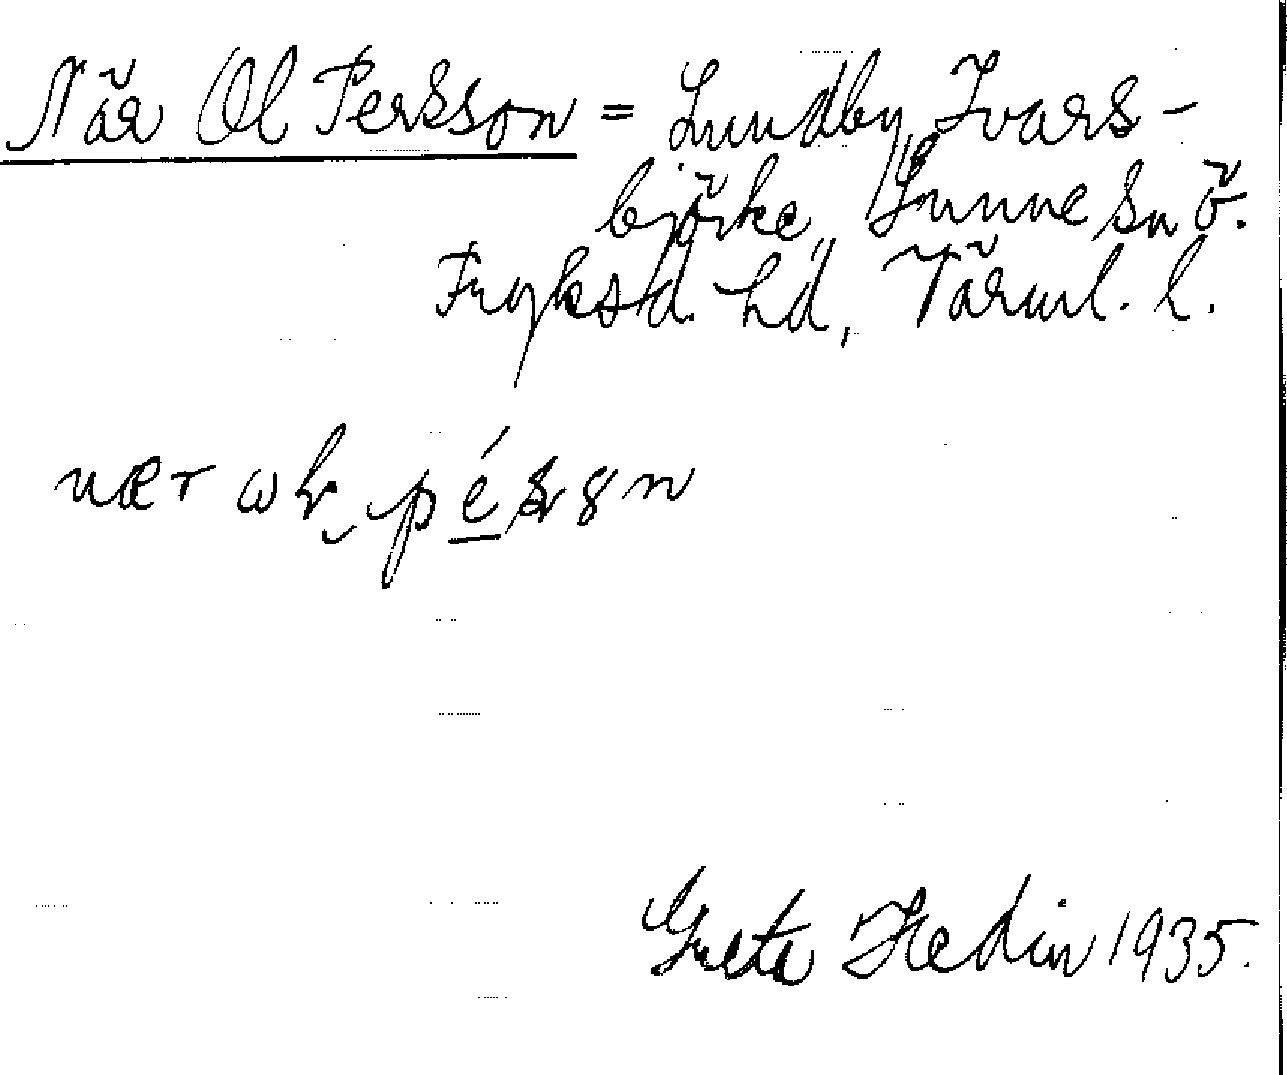 När Ol Persson = Lundby, Ivars-
björke, Sunne sn ö.
Fryksd. hd, Värml. l.
nær
Greta Hedin 1935.